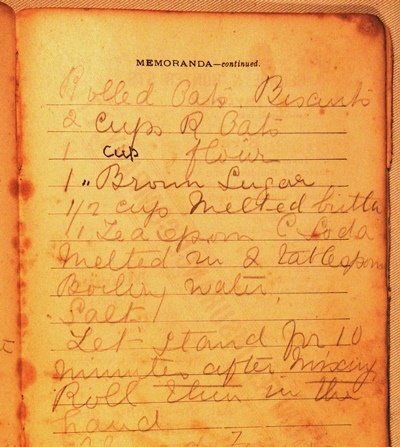 MEMORANDA—continued.
Rolled Oats Biscuits
2 cups R Oats
1 cup flour
1 " Brown Sugar
1/2 cup Melted butta
1 Tea spoon C Soda
Melted in 2 tablespoons
Boiling water
Salt
Let stand for 10
minutes after mixing
Roll then in the
hand